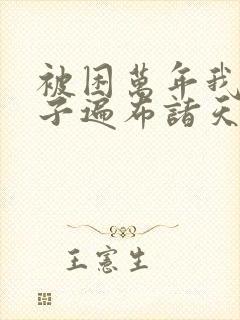 被困萬年我
子遍布諸天
王憲生